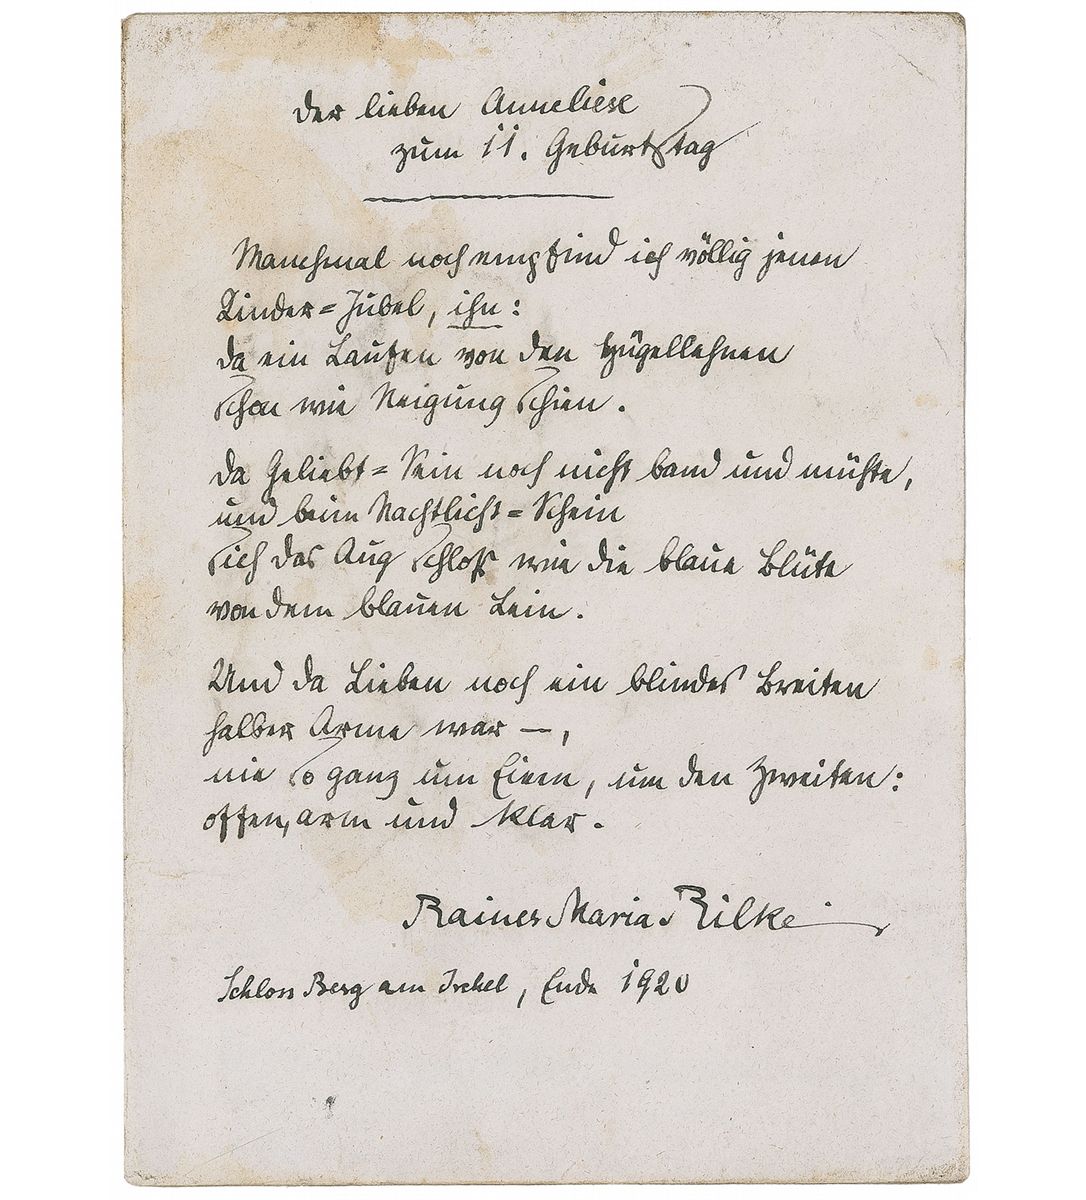 Der lieben Anneliese
zum 11. Geburtstag
Manchmal noch empfind ich völlig jenen
Kinder=Jubel, ihn:
da ein Laufen von den Hügellehnen
schon wie Neigung schien.
Da Geliebt=Sein noch nicht band und mühte,
und beim Nachtlicht=Schein
sich das Aug schloß wie die blaue Blüte
von dem blauen Lein.
Und da Lieben noch ein blindes Breiten
halber Arme war —,
nie so ganz um Einen, um den Zweiten:
offen, arm und klar.
Rainer Maria Rilke
Schloss Berg am Irchel, Ende 1920